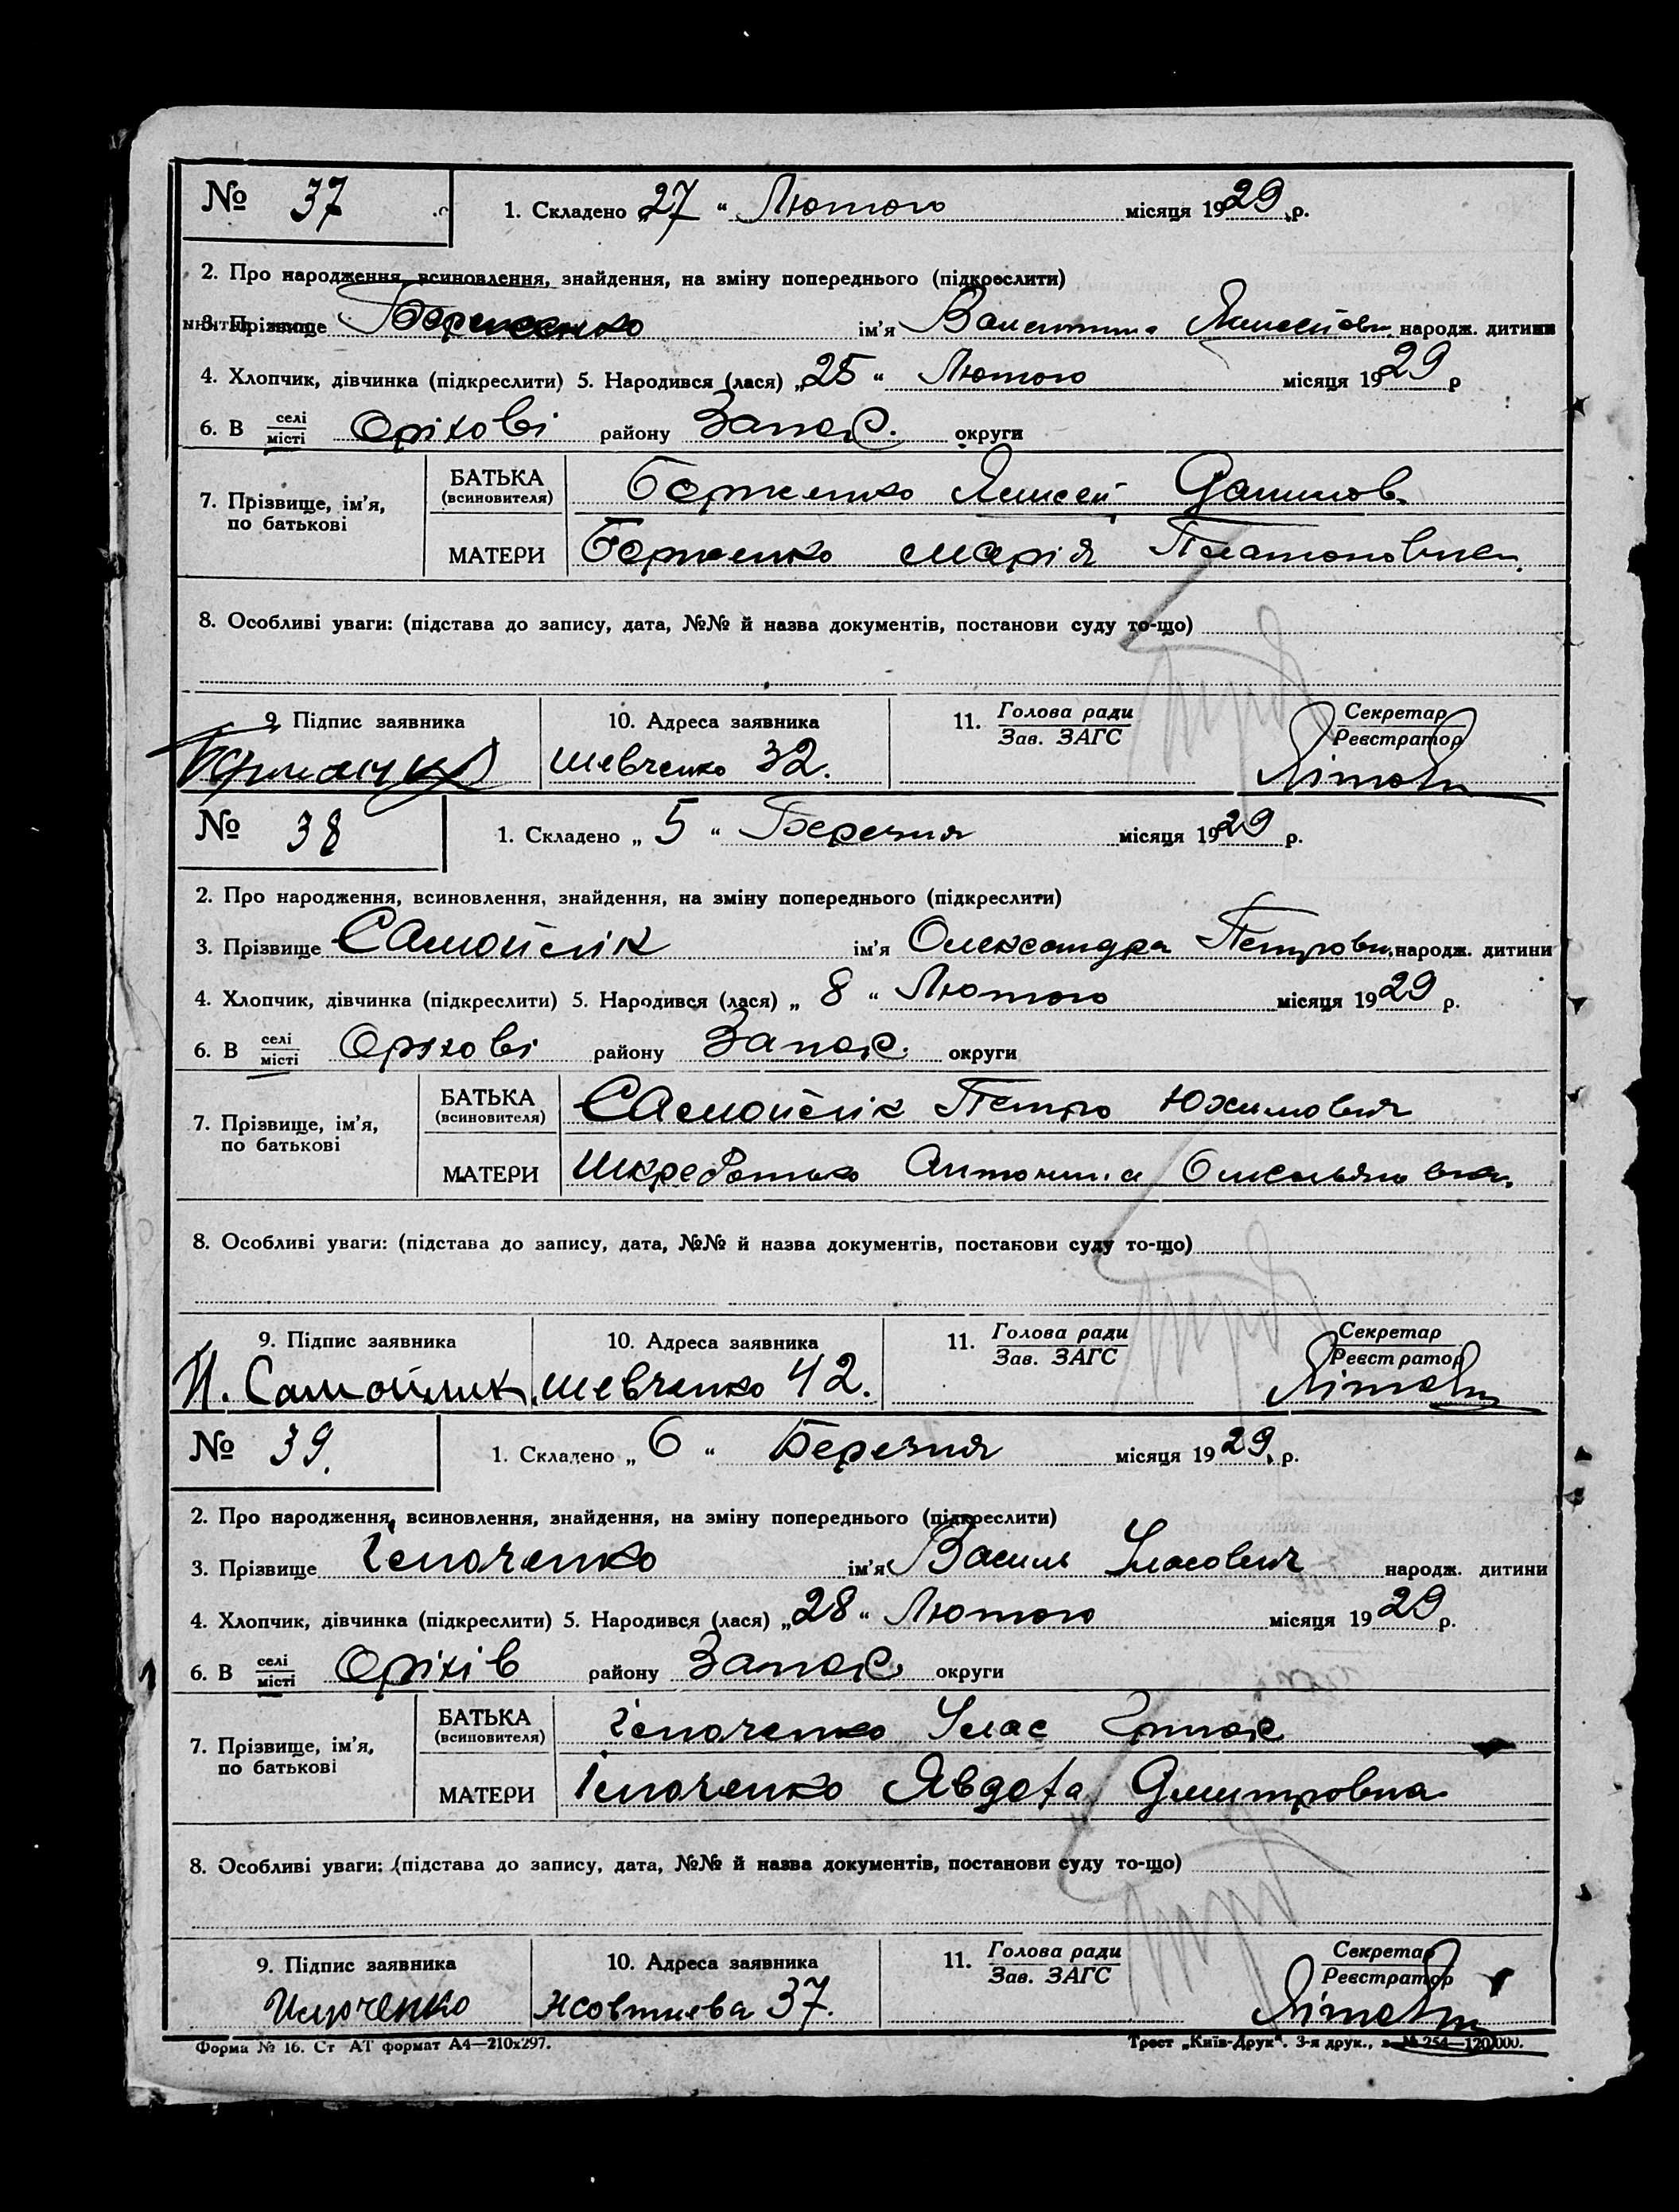 № 37 1. Складено „27“ Лютого місяця 1929 р.
2. Про народження, всиновлення, знайдення, на зміну попереднього (підкреслити)
3. Прізвище ім'я Валентина народж. дитини
4. Хлопчик, дівчинка (підкреслити) 5. Народився (лася) „25“ Лютого місяця 1929 р
6. В селі/місті Оріхові району Запоріз. округи
7. Прізвище, ім'я, по батькові БАТЬКА (всиновителя) Данилов.
МАТЕРИ Марія Платоновна
8. Особливі уваги: (підстава до запису, дата, №№ й назва документів, постанови суду то-що)
9. Підпис заявника 10. Адреса заявника 11. Голова ради/Зав. ЗАГС Секретар/Реєстратор
Шевченко 32.
№ 38 1. Складено „5“ Березня місяця 1929 р.
2. Про народження, всиновлення, знайдення, на зміну попереднього (підкреслити)
3. Прізвище Самойлік ім'я Олександра Петровн. народж. дитини
4. Хлопчик, дівчинка (підкреслити) 5. Народився (лася) „8“ Лютого місяця 1929 р.
6. В селі/місті Оріхові району округи
7. Прізвище, ім'я, по батькові БАТЬКА (всиновителя) Самойлік Петро Юхимович
МАТЕРИ Антонина
8. Особливі уваги: (підстава до запису, дата, №№ й назва документів, постанови суду то-що)
9. Підпис заявника 10. Адреса заявника 11. Голова ради/Зав. ЗАГС Секретар/Реєстратор
П. Самойлик Шевченко 42.
№ 39. 1. Складено „6“ Березня місяця 1929 р.
2. Про народження, всиновлення, знайдення, на зміну попереднього (підкреслити)
3. Прізвище ім'я Василь Уласович народж. дитини
4. Хлопчик, дівчинка (підкреслити) 5. Народився (лася) „28“ Лютого місяця 1929 р.
6. В селі/місті Оріхів району округи
7. Прізвище, ім'я, по батькові БАТЬКА (всиновителя) Улас
МАТЕРИ Явдоха Дмитровна
8. Особливі уваги: (підстава до запису, дата, №№ й назва документів, постанови суду то-що)
9. Підпис заявника 10. Адреса заявника 11. Голова ради/Зав. ЗАГС Секретар/Реєстратор
Жовтнева 37.
Форма № 16. Ст АТ формат А4—210х297. Трест „Київ-Друк“. 3-я друк., з. № 254—120.000.